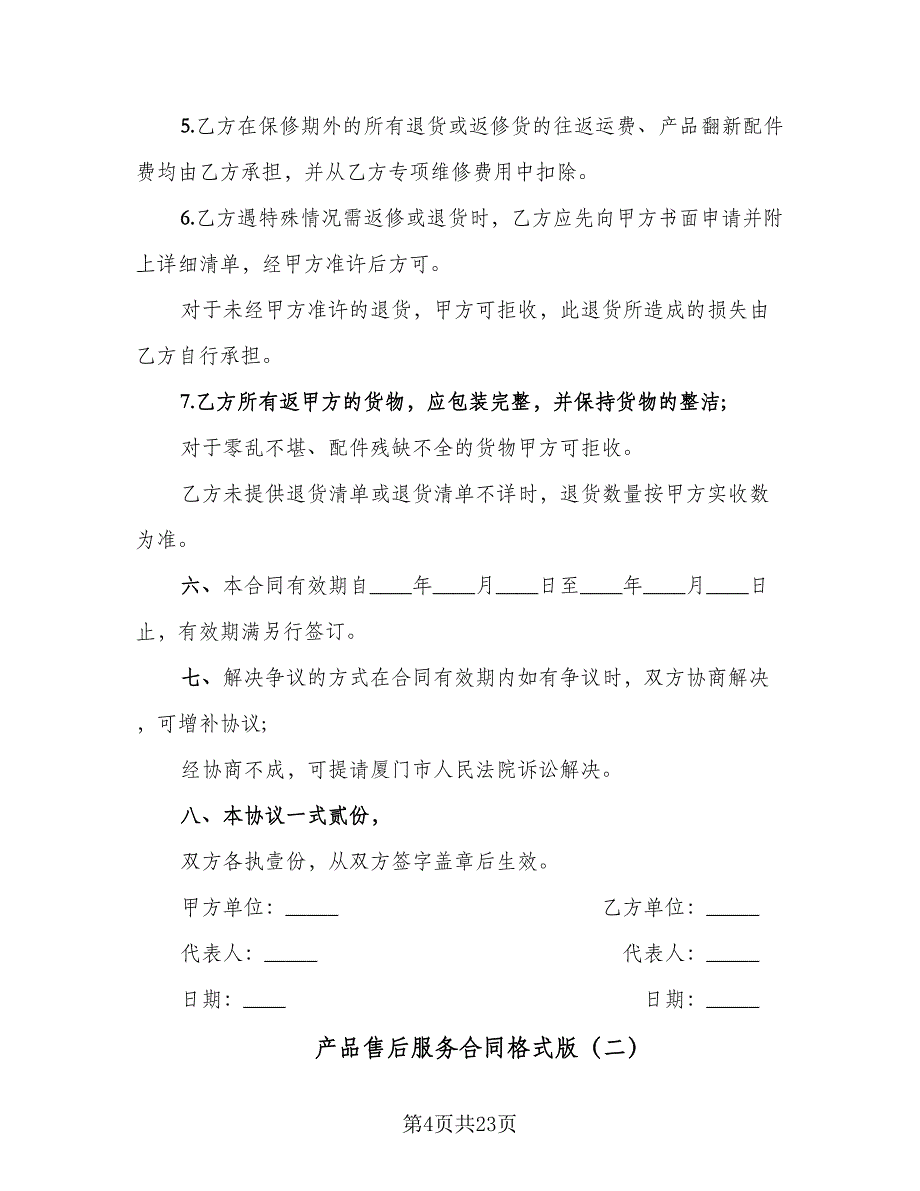 5.乙方在保修期外的所有退货或返修货的往返运费、产品翻新配件
费均由乙方承担，并从乙方专项维修费用中扣除。
6.乙方遇特殊情况需返修或退货时，乙方应先向甲方书面申请并附
上详细清单，经甲方准许后方可。
对于未经甲方准许的退货，甲方可拒收，此退货所造成的损失由
乙方自行承担。
7.乙方所有返甲方的货物，应包装完整，并保持货物的整洁;
对于零乱不堪、配件残缺不全的货物甲方可拒收。
乙方未提供退货清单或退货清单不详时，退货数量按甲方实收数
为准。
六、本合同有效期自____年____月____日至____年____月____日
止，有效期满另行签订。
七、解决争议的方式在合同有效期内如有争议时，双方协商解决
，可增补协议;
经协商不成，可提请厦门市人民法院诉讼解决。
八、本协议一式贰份，
双方各执壹份，从双方签字盖章后生效。
甲方单位：_____ 乙方单位：_____
代表人：_____ 代表人：_____
日期：____ 日期：_____
产品售后服务合同格式版（二）
第4页共23页